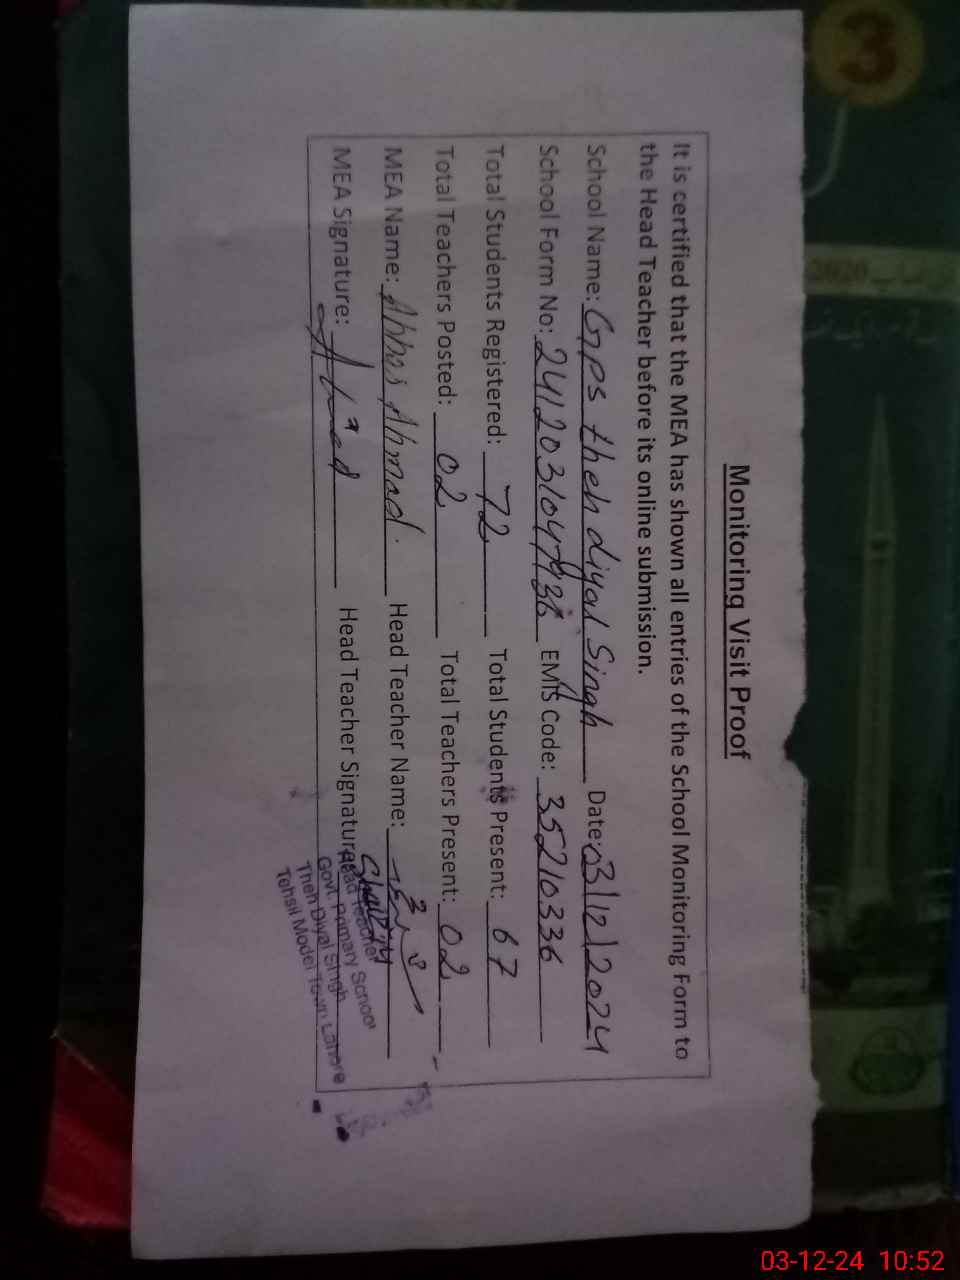 Monitoring Visit Proof
It is certified that the MEA has shown all entries of the School Monitoring Form to
the Head Teacher before its online submission.
School Name: Gps theh diyal Singh Date: 03/12/2024
School Form No: EMIS Code: 35210336
Total Students Registered: 72 Total Students Present: 67
Total Teachers Posted: 02 Total Teachers Present: 02
MEA Name: Abbas Ahmad Head Teacher Name:
MEA Signature: Head Teacher Signature:
Head Teacher
Govt. Primary School
Theh Diyal Singh
Tehsil Model Town Lahore
2020
03-12-24 10:52